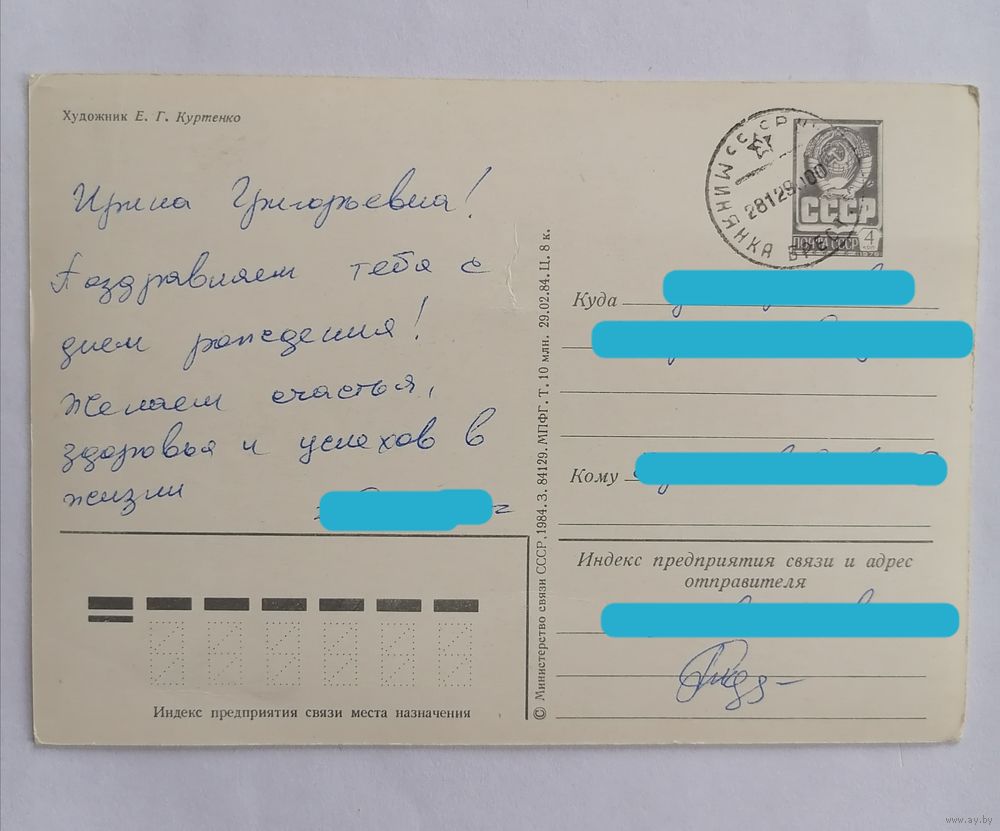 Художник Е. Г. Куртенко
Ирина Григорьевна!
Поздравляем тебя с
днем рождения!
Желаем счастья,
здоровья и успехов в
жизни
Индекс предприятия связи места назначения
© Министерство связи СССР. 1984. З. 84129. МПФГ. Т. 10 млн. 29.02.84. Ц. 8 к.
МИНЯНКА
281290
СССР
ПОЧТА СССР
4
КОП
Куда
Кому
Индекс предприятия связи и адрес
отправителя
www.ay.by